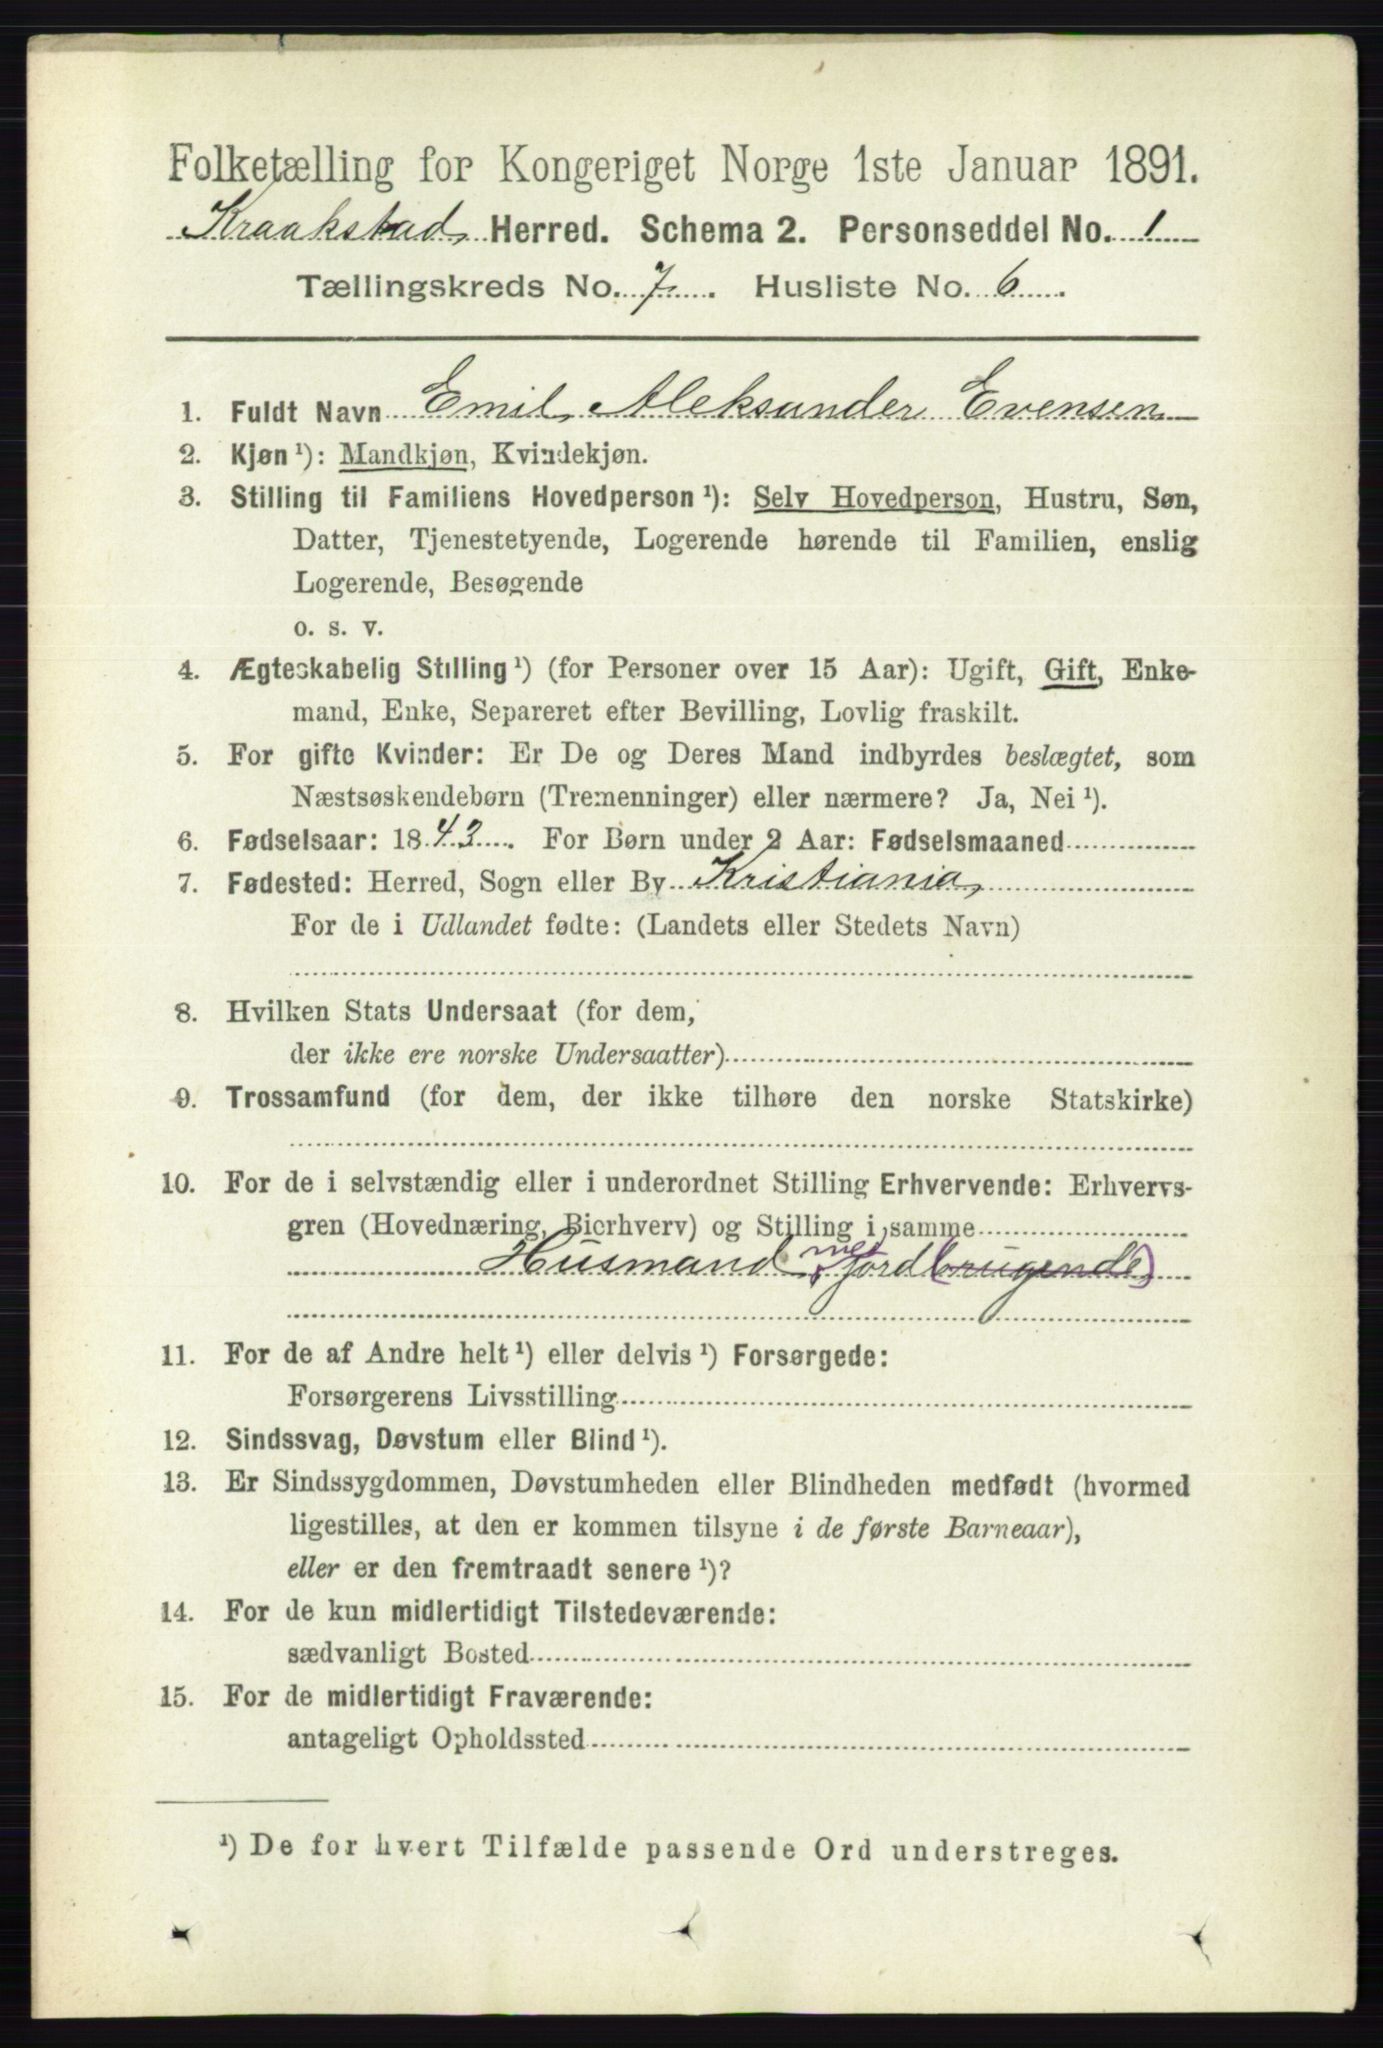 Folketælling for Kongeriget Norge 1ste Januar 1891.
Kraakstad Herred. Schema 2. Personseddel No. 1
Tællingskreds No. 7. Husliste No. 6.
1. Fuldt Navn Emil Aleksander Evensen
2. Kjøn ¹): Mandkjøn, Kvindekjøn.
3. Stilling til Familiens Hovedperson ¹): Selv Hovedperson, Hustru, Søn,
Datter, Tjenestetyende, Logerende hørende til Familien, enslig
Logerende, Besøgende
o. s. v.
4. Ægteskabelig Stilling ¹) (for Personer over 15 Aar): Ugift, Gift, Enke-
mand, Enke, Separeret efter Bevilling, Lovlig fraskilt.
5. For gifte Kvinder: Er De og Deres Mand indbyrdes beslægtet, som
Næstsøskendebørn (Tremenninger) eller nærmere? Ja, Nei ¹).
6. Fødselsaar: 1843. For Børn under 2 Aar: Fødselsmaaned
7. Fødested: Herred, Sogn eller By Kristiania,
For de i Udlandet fødte: (Landets eller Stedets Navn)
8. Hvilken Stats Undersaat (for dem,
der ikke ere norske Undersaatter)
9. Trossamfund (for dem, der ikke tilhøre den norske Statskirke)
10. For de i selvstændig eller i underordnet Stilling Erhvervende: Erhvervs-
gren (Hovednæring, Bierhverv) og Stilling i samme
Husmand med jord(brugende)
11. For de af Andre helt ¹) eller delvis ¹) Forsørgede:
Forsørgerens Livsstilling
12. Sindssvag, Døvstum eller Blind ¹).
13. Er Sindssygdommen, Døvstumheden eller Blindheden medfødt (hvormed
ligestilles, at den er kommen tilsyne i de første Barneaar),
eller er den fremtraadt senere ¹)?
14. For de kun midlertidigt Tilstedeværende:
sædvanligt Bosted
15. For de midlertidigt Fraværende:
antageligt Opholdssted
¹) De for hvert Tilfælde passende Ord understreges.